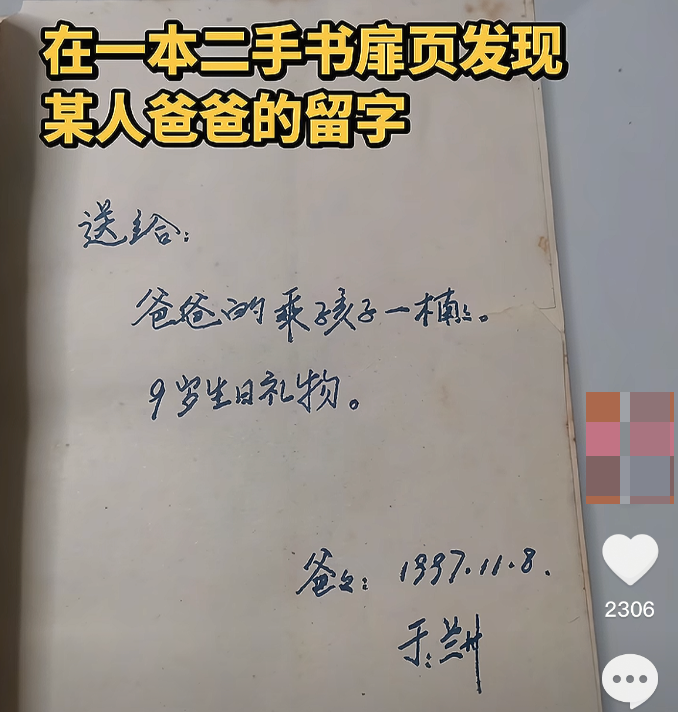 在一本二手书扉页发现
某人爸爸的留字
送给:
爸爸的乖孩子一楠:。
9岁生日礼物。
爸爸: 1997.11.8.
于:兰州
2306